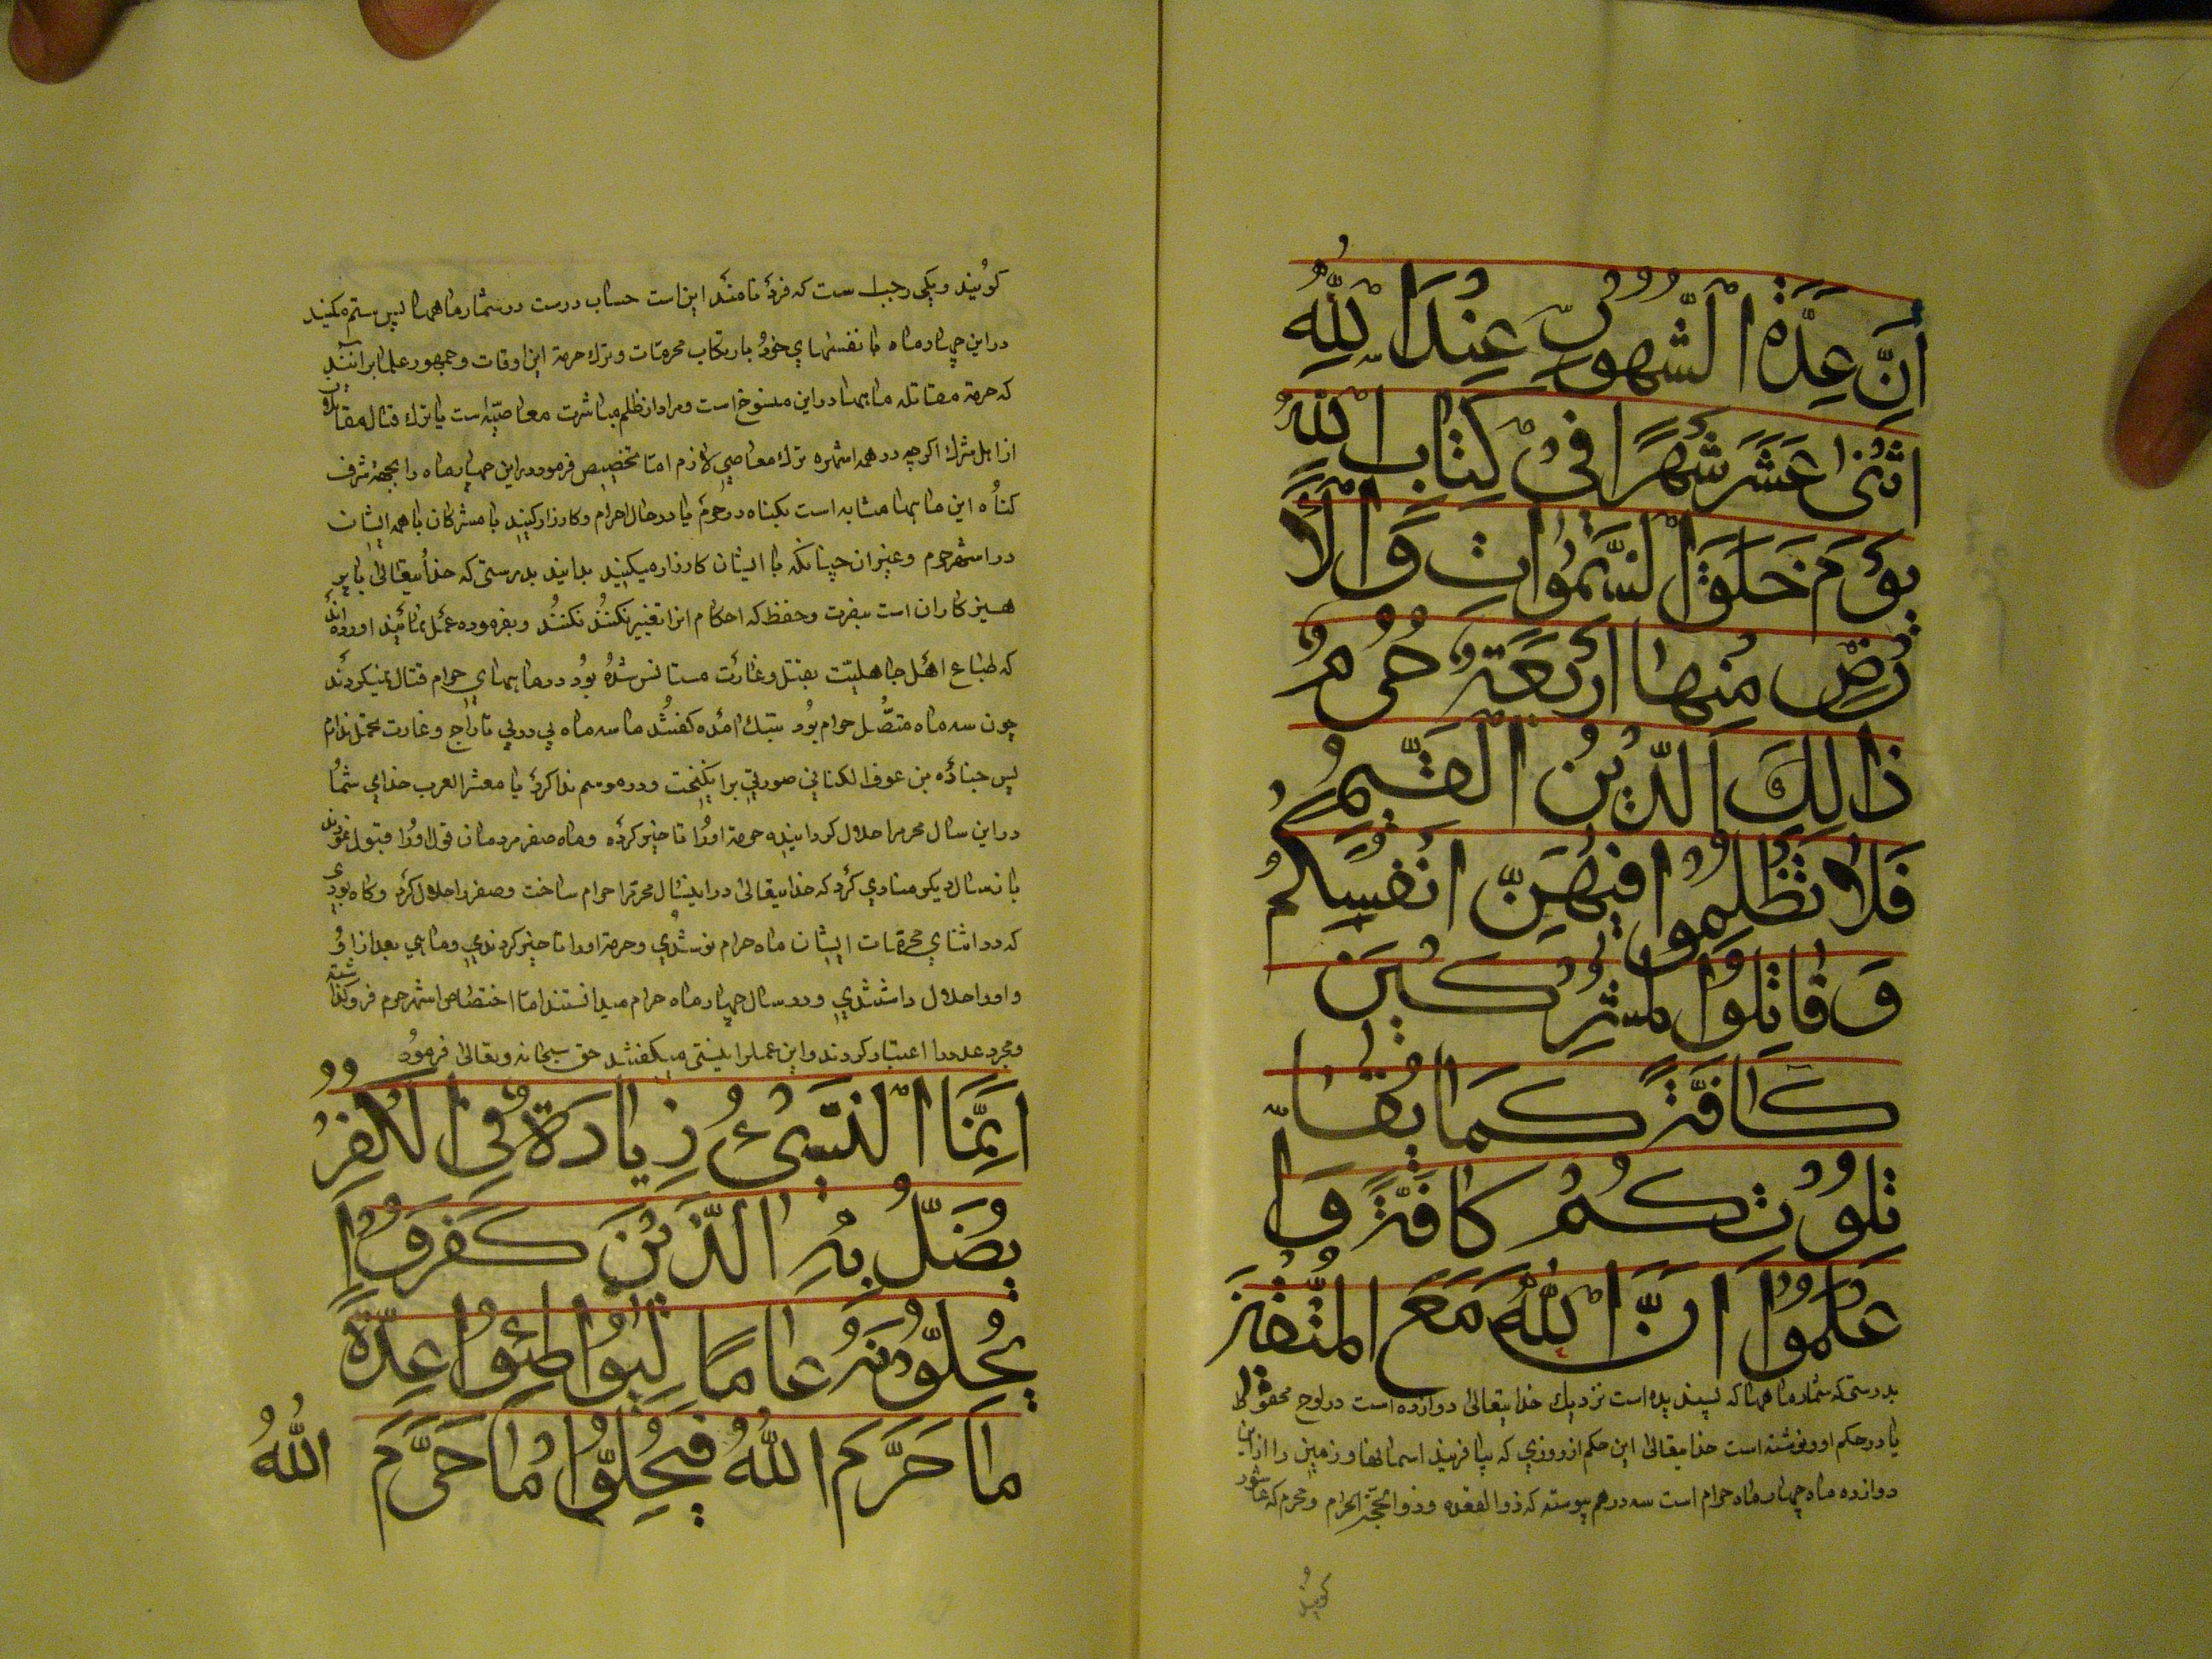 اِنَّ عِدَّةَ الشُّهُورِ عِنْدَ اللهِ
اثْنٰی عَشَرَ شَهْرًا فِیْ کِتَابِ اللهِ
یَوْمَ خَلَقَ السَّمٰوَاتِ وَالْاَ
رْضِ مِنْهَا اَرْبَعَةٌ حُرُمٌ
ذَالِكَ الدِّیْنُ الْقَیِّمُ
فَلَا تَظْلِمُوا فِیْهِنَّ اَنْفُسَکُمْ
وَقَاتِلُوا لمشْرِکِیْنَ
کَافَّةً کَمَا یُقَا
تِلُوْنَکُمْ کَافَّةً وَا
عْلَمُوْا اَنَّ اللهَ مَعَ الْمُتَّقِیْنَ
بدرستی که شمار ماهها که پسندیده است نزدیك خدایتعالی دوازده است در لوح محفوظ
یا در حکم او و نوشته است خدایتعالی این حکم از روزی که بیافرید اسمانها و زمین را از این
دوازده ماه چهار ماه حرام است سه درهم پیوسته که ذوالقعده و ذوالحجة الحرام و محرم که عاشور
کویند
کویند و یکی رجب است که فرد نامند این است حساب درست در شمار ماهها پس ستم مکنید
در این چهار ماه با نفسهای خود بارتکاب محرمات و ترك حرمة این اوقات و جمهور علما برانند
که حرمة مقاتله ماهها در این منسوخ است و مراد از ظلم مباشرت معاصی است یا ترك قتال مقاتله
از اهل شرك اکرچه در همه اشهر ترك معاصی لازم اما تخصیص فرمودن این چهار ماه را بجهة شرف
کناه این ماهها مشابه است بکناه در حرم یا در حال احرام و کارزار کنید با مشرکان با همه ایشان
در اشهر حرم و غیر ان چنانکه با ایشان کارزار میکنند بدانید بدرستی که خدایتعالی با پر
هیزکاران است بنصرت و حفظ که احکام انرا تغییر نکنند و بفرموده عمل نمایند اورده‌اند
که طباع اهل جاهلیت بقتل و غارت مستانس شده بود در ماههای حرام قتال نمیکردند
چون سه ماه متصل حرام بود بتنك امده کفتند ما سه ماه پی در پی تاراج و غارت تحمل نداریم
پس جناده بن عوف الکنانی صورتی برانکیخت و در موسم ندا کرد یا معشر العرب خدای شما
در این سال محرم را حلال کردانیده حرمة اورا تاخیر کرده و ماه صفر مردمان قول اورا قبول نمودند
باز سال دیکر منادی کرد که خدایتعالی در اینسال محرم را حرام ساخت و صفر را حلال کرد و کاه بودی
که در اثنای محرمات ایشان ماه حرام نو شدی و حرمة اورا تاخیر کردندی و ماهی بعد از او
و اورا حلال داشتندی و در سال چهار ماه حرام میدانستند اما اختصاص اشهر حرم فرو کذاشته
و مجرد عدد را اعتبار کردند و این عمل را نسئ میکفتند حق سبحانه و تعالی فرمود
اِنَّمَا النَّسِیْءُ زِیَادَةٌ فِی الْکُفْرِ
یُضَلُّ بِهِ الَّذِیْنَ کَفَرُوْا
یُحِلُّوْنَهُ عَامًا لِیُوَاطِئُوْا عِدَّةَ
مَا حَرَّمَ اللهُ فَیُحِلُّوْا مَا حَرَّمَ اللهُ